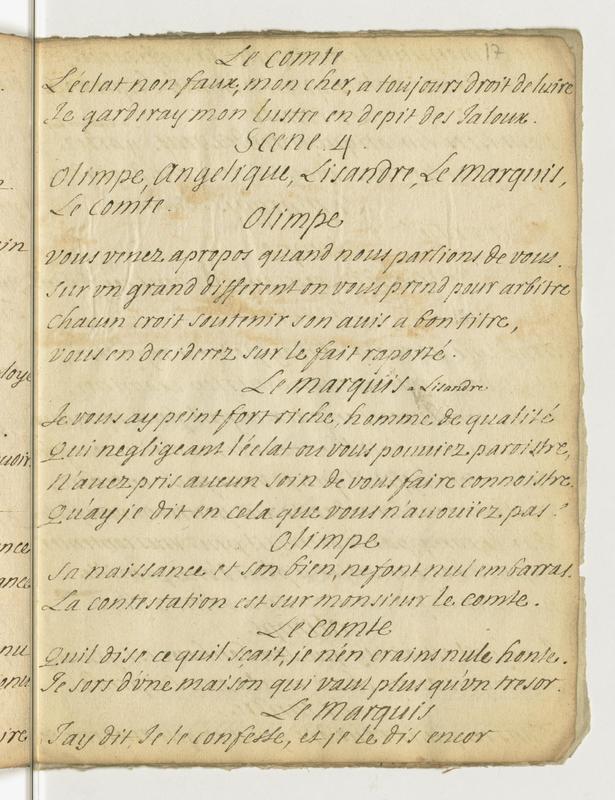 17
Le comte
L'éclat non faux, mon cher, a toujours droit de luire
Je garderay mon lustre en depit des Jaloux.
Scene. 4
Olimpe, Angelique, Lisandre, Le Marquis,
Le comte.
Olimpe
vous venez apropos quand nous parlions de vous.
sur vn grand different on vous prend pour arbitre
chacun croit soutenir son auis a bon titre,
vous en deciderez sur le fait raporté.
Le marquis a Lisandre
Je vous ay peint fort riche, homme de qualité
Qui negligeant l'éclat ou vous pouuiez paroistre,
N'auez pris aucun soin de vous faire connoistre
Qu'ay je dit en cela que vous n'auouïez pas?
Olimpe
sa naissance et son bien, ne font nul embarras.
La contestation est sur monsieur le comte.
Le comte
Quil dise ce quil sçait, je n'en crains nule honte.
Je sors d'vne maison qui vaut plus qu'vn tresor.
Le Marquis
J'ay dit, Je le confesse, et je le dis encor